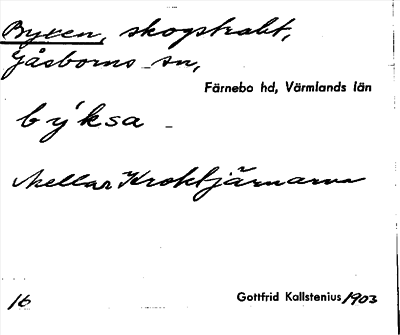 Byxen, skogstrakt,
Gåsborns sn,
Färnebo hd, Värmlands län
býksa
Mellan Kroktjärnarna
16
Gottfrid Kallstenius 1903